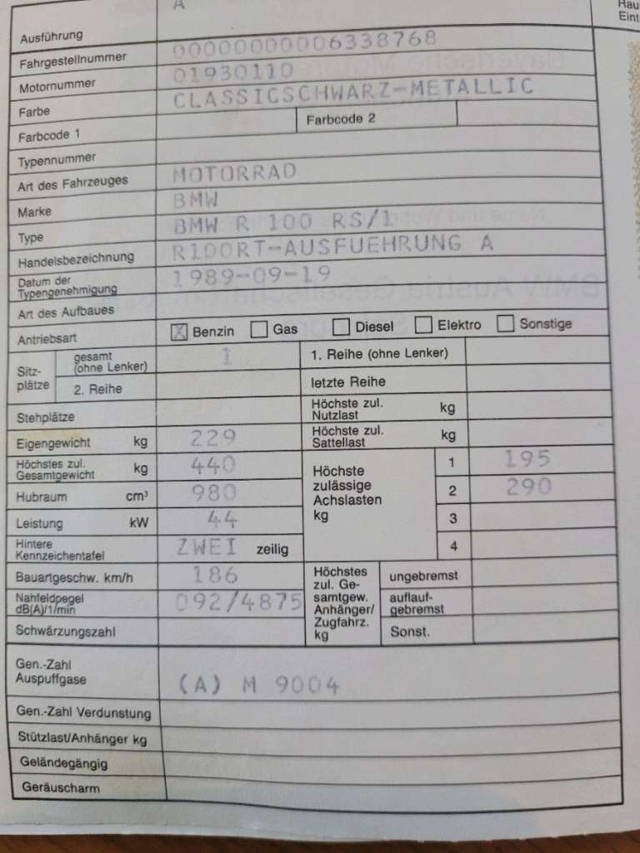 A
Rau
Eint
Ausführung
Fahrgestellnummer 00000000006338768
Motornummer 01930110
Farbe CLASSICSCHWARZ-METALLIC
Farbcode 1 Farbcode 2
Typennummer
Art des Fahrzeuges MOTORRAD
Marke BMW
Type BMW R 100 RS/1
Handelsbezeichnung R100RT-AUSFUEHRUNG A
Datum der Typengenehmigung 1989-09-19
Art des Aufbaues
Antriebsart X Benzin Gas Diesel Elektro Sonstige
Sitz-plätze gesamt (ohne Lenker) 1 1. Reihe (ohne Lenker)
2. Reihe letzte Reihe
Stehplätze Höchste zul. Nutzlast kg
Eigengewicht kg 229 Höchste zul. Sattellast kg
Höchstes zul. Gesamtgewicht kg 440 Höchste zulässige Achslasten kg 1 195
Hubraum cm³ 980 2 290
Leistung kW 44 3
Hintere Kennzeichentafel ZWEI zeilig 4
Bauartgeschw. km/h 186 Höchstes zul. Ge-samtgew. Anhänger/Zugfahrz. kg ungebremst
Nahfeldpegel dB(A)/1/min 092/4875 auflauf-gebremst
Schwärzungszahl Sonst.
Gen.-Zahl Auspuffgase (A) M 9004
Gen.-Zahl Verdunstung
Stützlast/Anhänger kg
Geländegängig
Geräuscharm